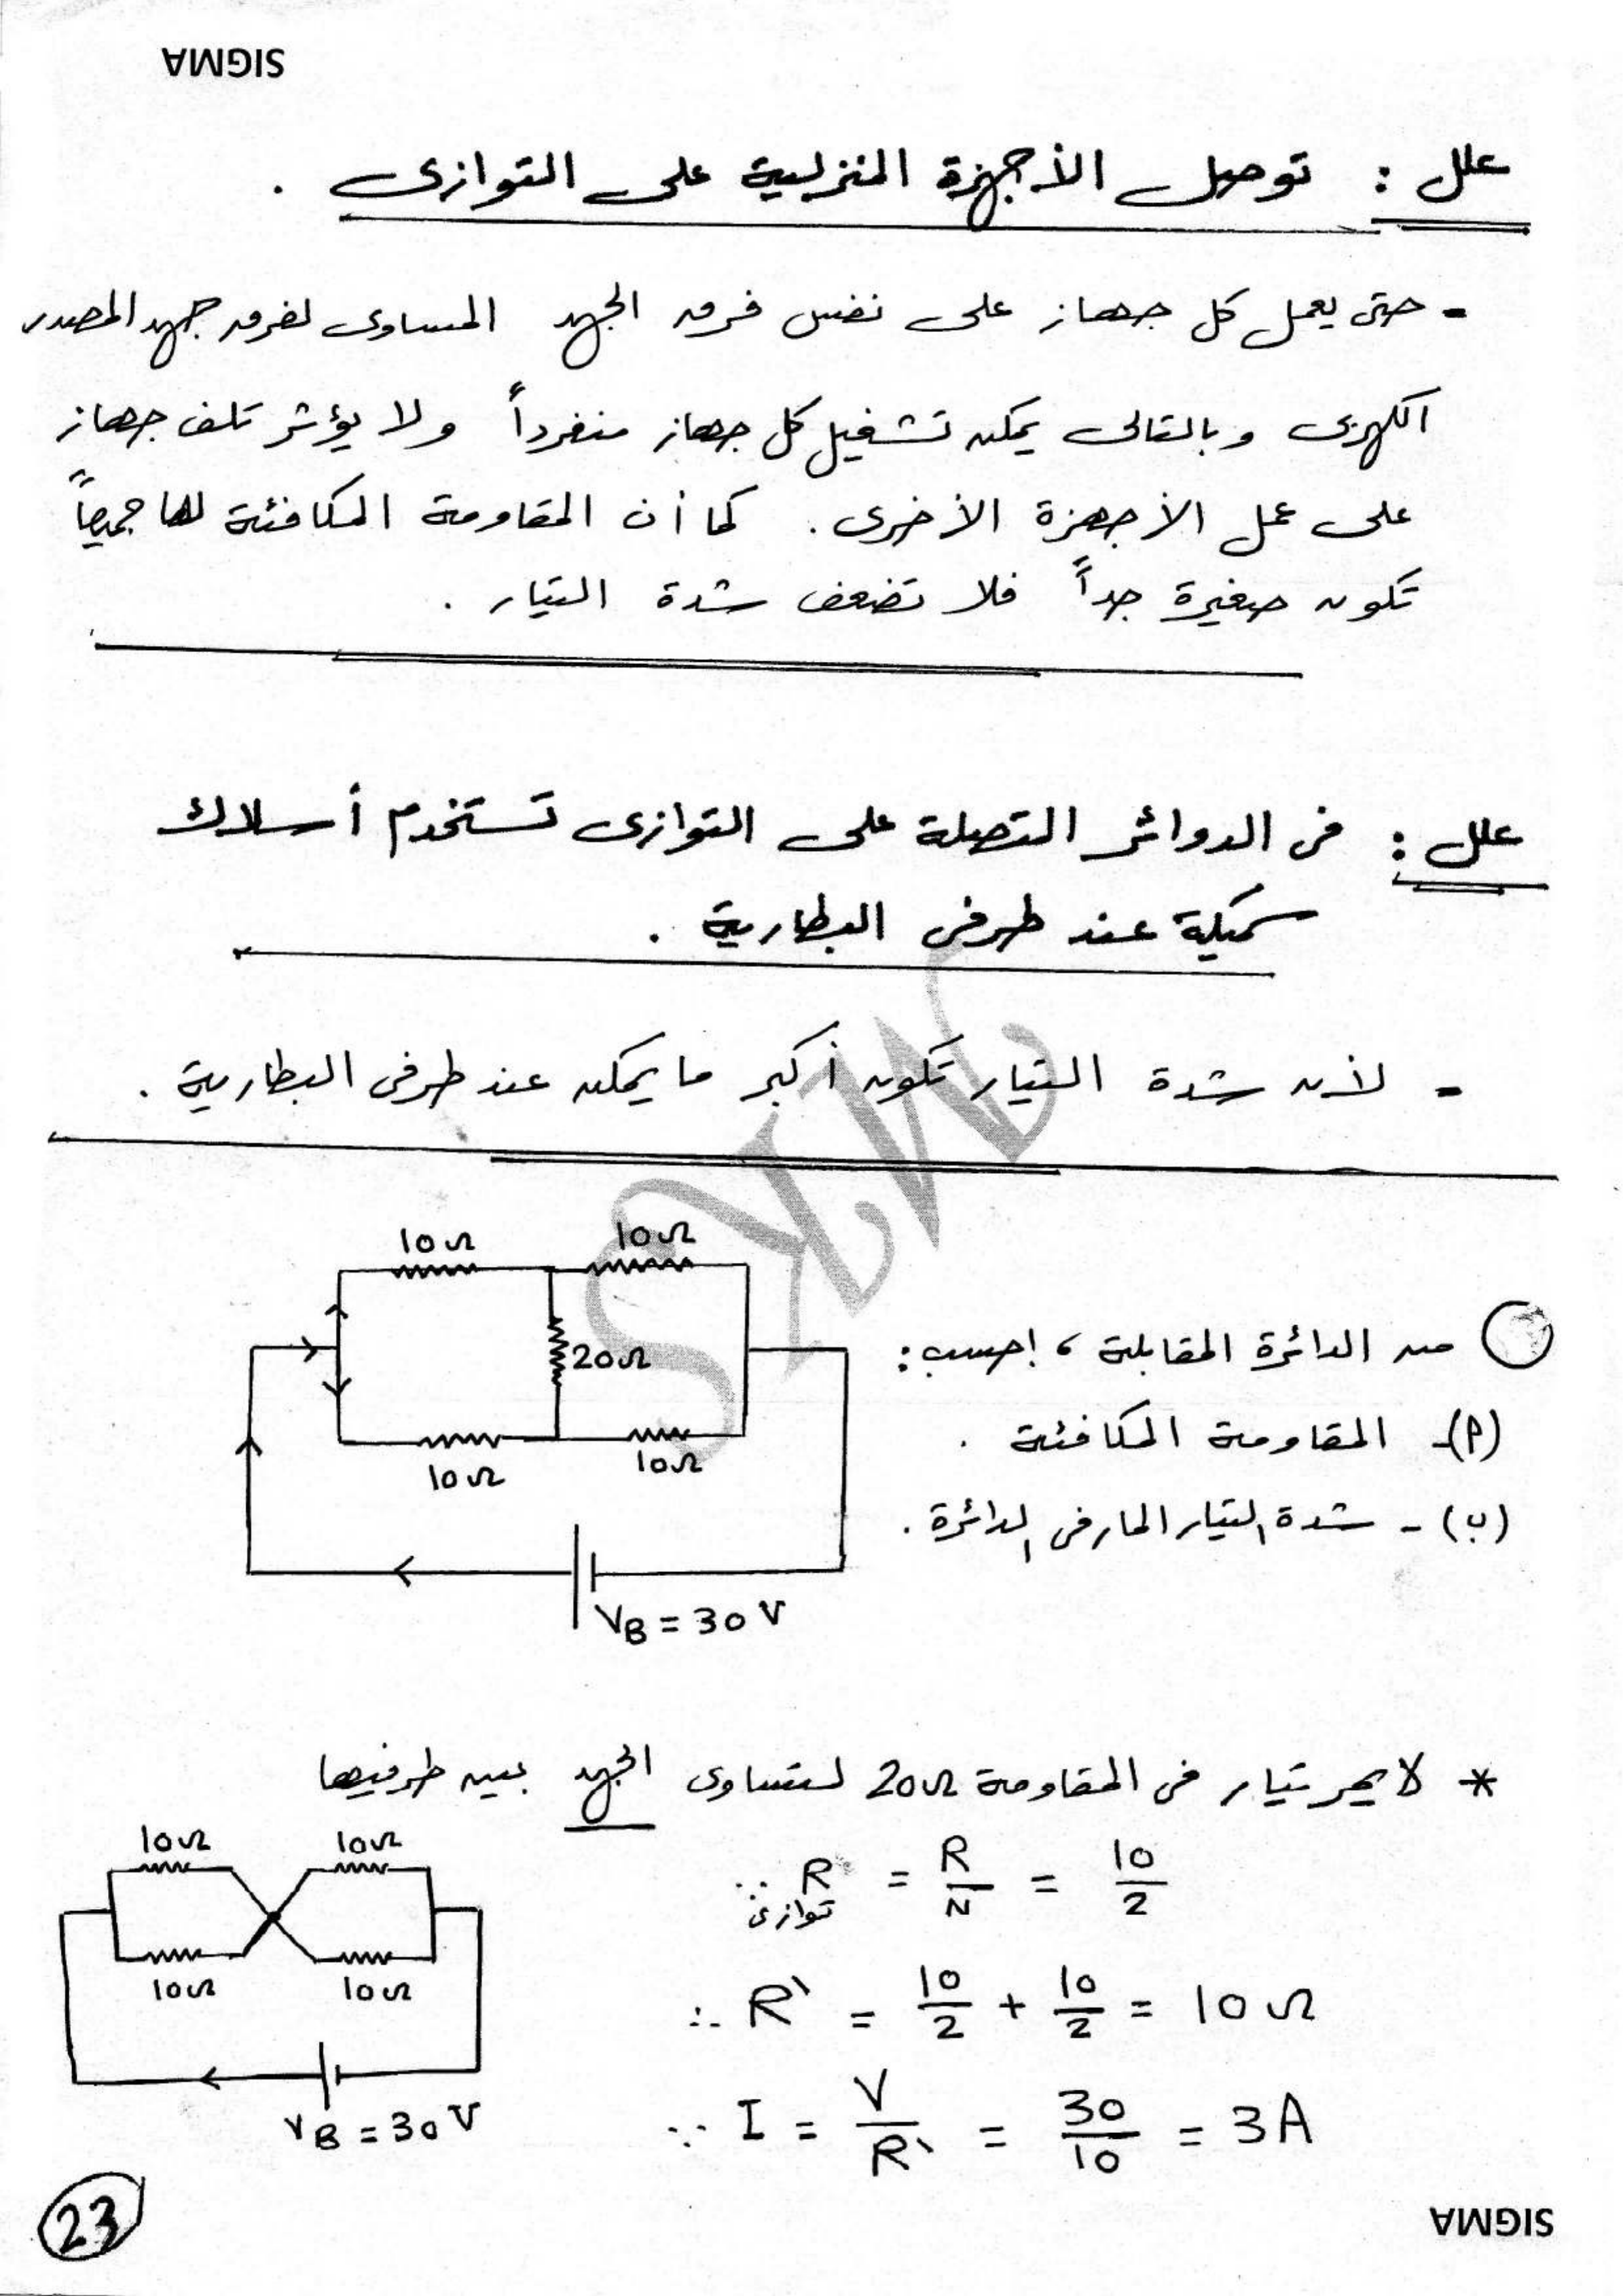 SIGMA
علل : توصيل الأجهزة المنزلية على التوازى .
- حتى يعمل كل جهاز على نفس فرق الجهد المساوى لفرق جهد المصدر
الكهربى وبالتالى يمكن تشغيل كل جهاز منفرداً ولا يؤثر تلف جهاز
على عمل الأجهزة الأخرى . كما أن المقاومة المكافئة لها جميعاً
تكون صغيرة جداً فلا تضعف شدة التيار .
علل : فى الدوائر المتصلة على التوازى تستخدم أسلاك
سميكة عند طرفى البطارية .
- لأن شدة التيار تكون أكبر ما يمكن عند طرفى البطارية .
10Ω 10Ω
20Ω
10Ω 10Ω
VB = 30 V
من الدائرة المقابلة ، احسب :
(أ)- المقاومة المكافئة .
(ب) - شدة التيار المار فى الدائرة .
* لا يمر تيار فى المقاومة 20Ω لتساوى الجهد بين طرفيها
10Ω 10Ω
10Ω 10Ω
VB = 30 V
∵ R توازى = R/N = 10/2
∴ R\ = 10/2 + 10/2 = 10 Ω
∵ I = V/R\ = 30/10 = 3A
23
SIGMA